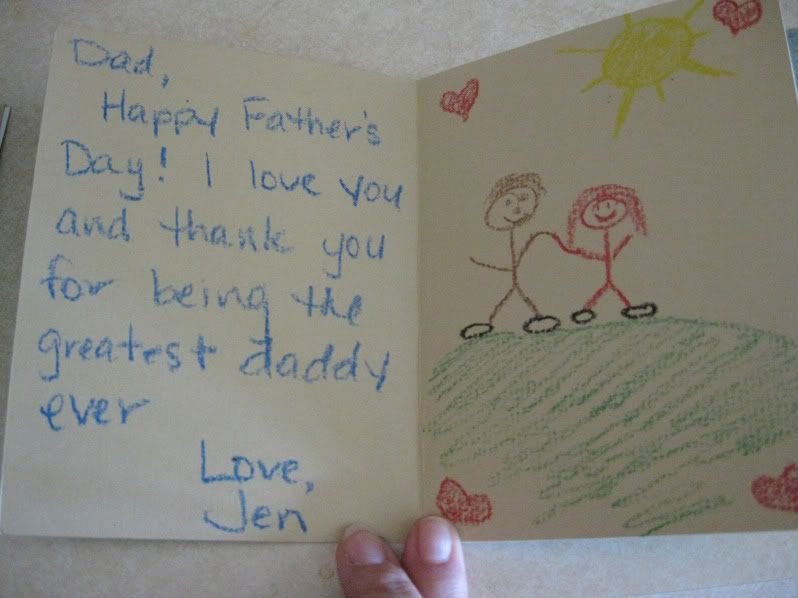 Dad,
Happy Father's
Day! I love you
and thank you
for being the
greatest daddy
ever
Love,
Jen